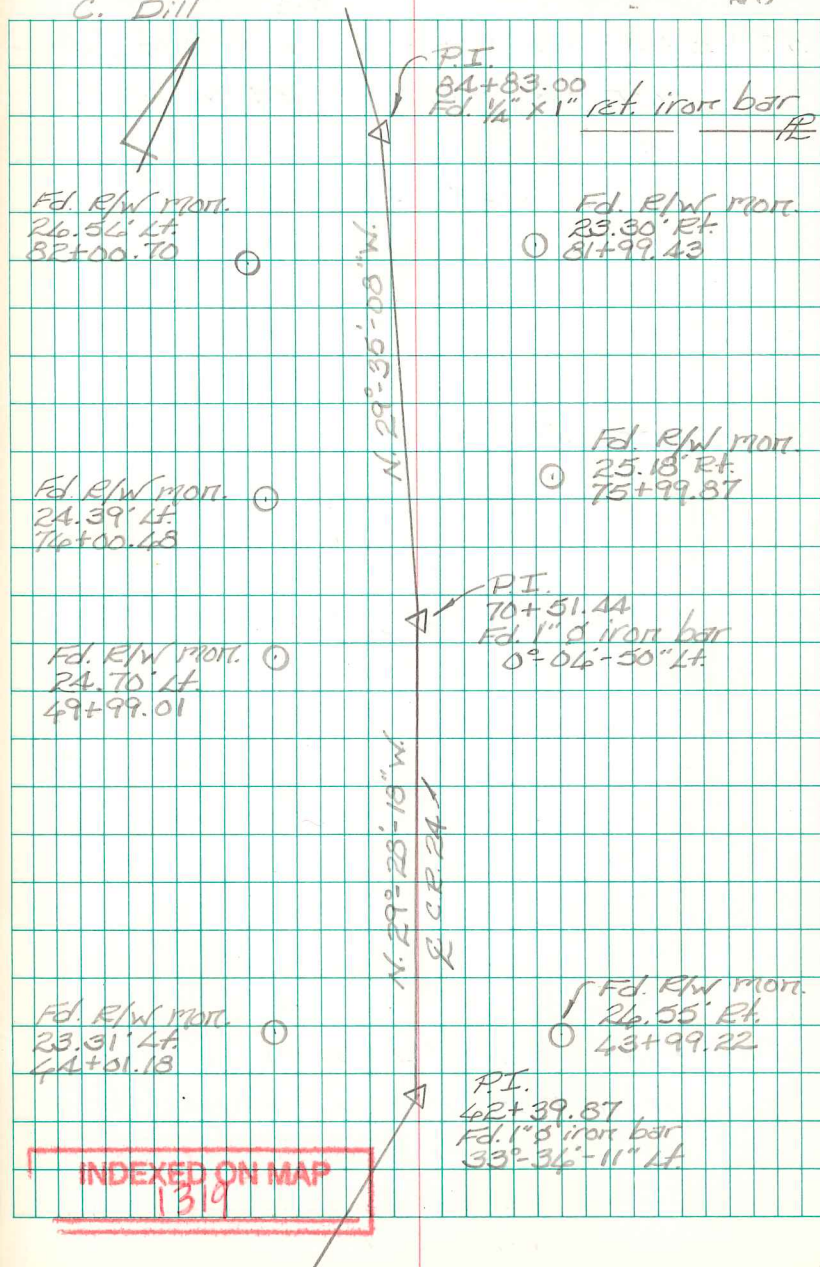 C. Dill
P.I.
84+83.00
Fd. 1/4" x 1" rct. iron bar
PL
Fd. R/W mon.
26.56' Lt.
82+00.70
Fd. R/W mon.
23.30' Rt.
81+99.43
N. 29°-35'-08" W.
Fd. R/W mon.
25.18' Rt.
75+99.87
Fd. R/W mon.
24.39' Lt.
76+00.68
P.I.
70+51.44
Fd. 1" ø iron bar
0°-06'-50" Lt.
Fd. R/W mon.
24.70' Lt.
69+99.01
N. 29°-28'-18" W.
℄ C.R. 24
Fd. R/W mon.
26.55' Rt.
63+99.22
Fd. R/W mon.
23.31' Lt.
64+01.18
P.I.
62+39.87
Fd. 1" ø iron bar
33°-36'-11" Lt.
INDEXED ON MAP
1319